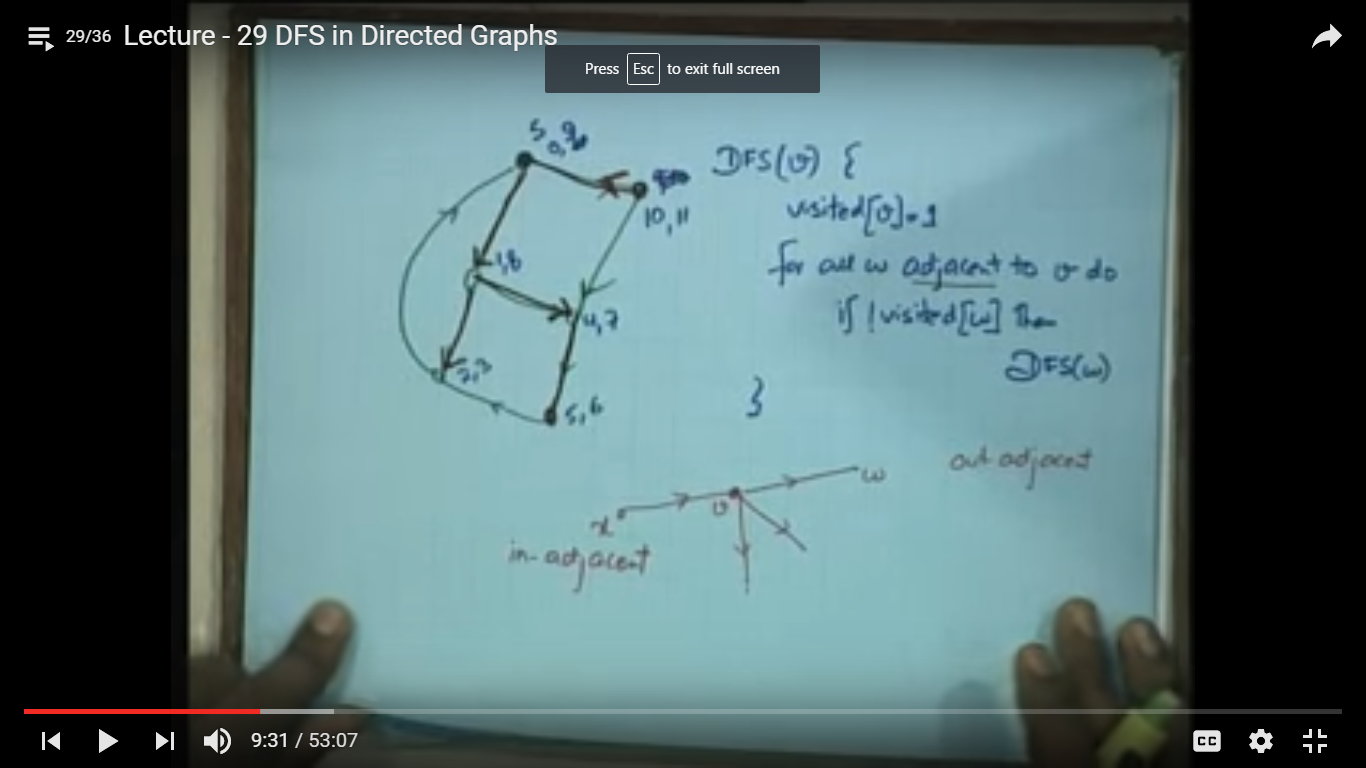 29/36 Lecture - 29 DFS in Directed Graphs
Press Esc to exit full screen
s
0,9
10,11
1,8
4,7
2,3
5,6
DFS(v) {
visited[v]=1
for all w adjacent to v do
if !visited[w] then
DFS(w)
}
w
out adjacent
v
x
in-adjacent
9:31 / 53:07
CC